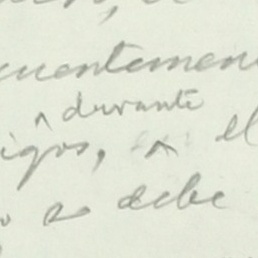 cuentemen
durante
igos, el
se debe